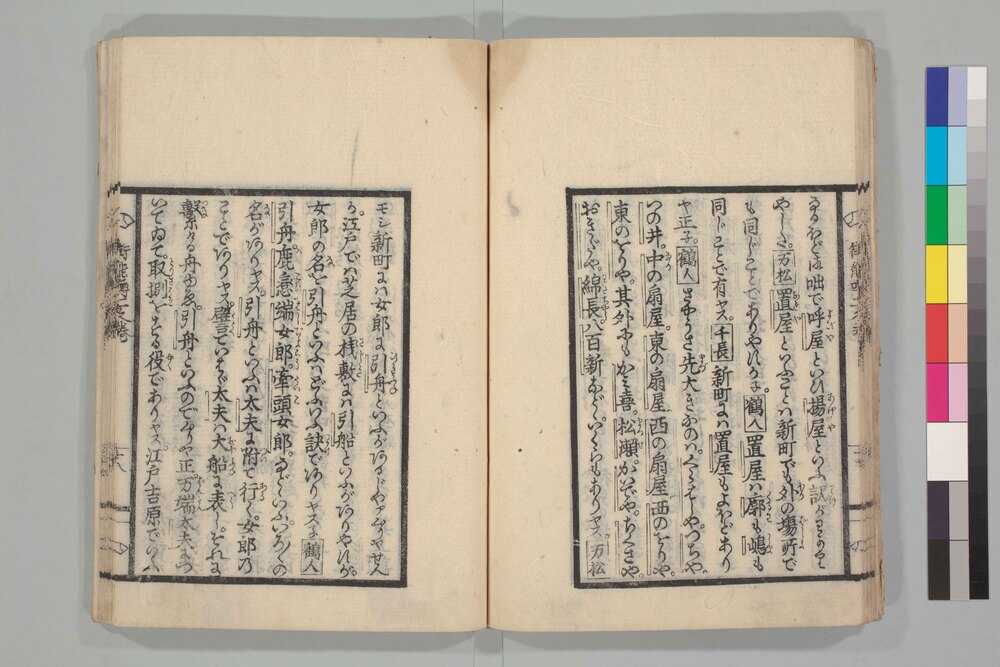 なるほど是は咄で呼屋といひ揚屋といふ訳が
やした。万松置屋といふことは新町でも外の場所で
も同じことでありやすかネ。鶴人置屋は廓も嶋も
同じことで有ヤス。千長新町には置屋もよほどあり
ヤ正子。鶴人さやうさ先大きなのはくらはしや。つちや。
つの井。中の扇屋。東の扇屋。西の扇屋。西のをりや。
東のをりや。其外にもかミ喜。松瀬。かいでや。ちくさや。
おさだや。綿長。八百新など。いくらもありヤス。万松
モシ新町には女郎に引舟といふがあるじやアありやせん
か。江戸では芝居の桟敷には引船といふがありやすが。
女郎の名で引舟といふはどふいふ訣でありヤスナ鶴人
引舟。鹿恋。端女郎。牽頭女郎。などといふいろ〳〵の
名がありヤス。引舟といふは太夫に附行く。女郎乃
ことでありヤス。譬ていはゞ太夫は大船に表し。それに
繋ぐる舟ゆゑ。引舟といふのでありヤ正万端太夫につ
いてゐて。取捌をする役でありヤス江戸吉原でのい